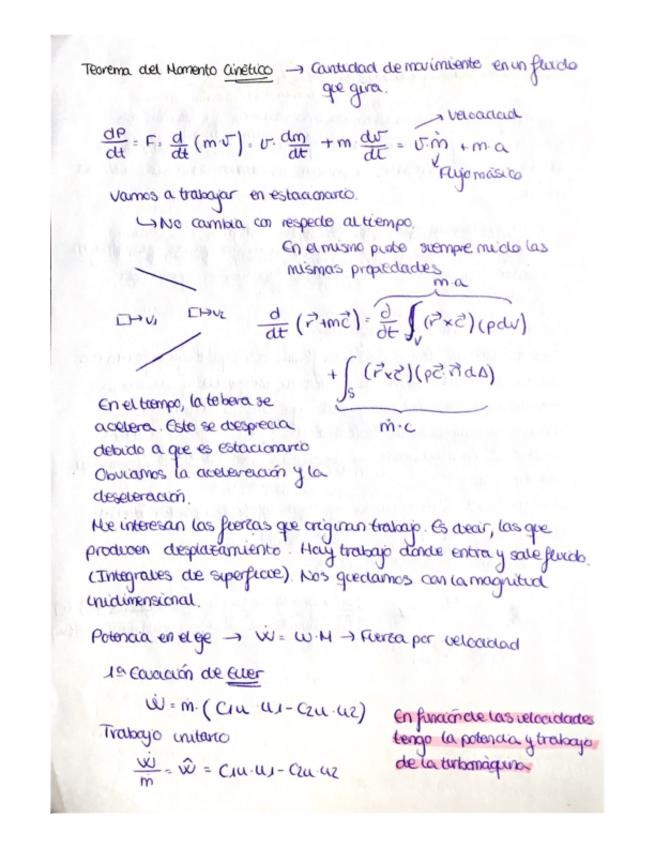 Teorema del Momento Cinético → Cantidad de movimiento en un fluido
que gira.
→ velocidad
dP/dt = F = d/dt (m·v) = v · dm/dt + m · dv/dt = v·ṁ + m·a
Flujo másico
Vamos a trabajar en estacionario.
↳ No cambia con respecto al tiempo.
En el mismo punto siempre mido las
mismas propiedades
m·a
□→v1 □→v2 d/dt (r⃗+mc⃗) = ∂/∂t ∫V (r⃗xc⃗)(ρdv)
+ ∫S (r⃗xc⃗)(ρc⃗·n⃗dA)
ṁ·c
En el tiempo, la tobera se
acelera. Esto se desprecia
debido a que es estacionario
Obviamos la aceleración y la
deseleración.
Me interesan las fuerzas que originan trabajo. Es decir, las que
producen desplazamiento. Hay trabajo donde entra y sale fluido.
(Integrales de superficie). Nos quedamos con la magnitud
unidimensional.
Potencia en el eje → Ẇ = ω·M → Fuerza por velocidad
1ª Ecuación de Euler
Ẇ = ṁ·(C1u·u1-C2u·u2)
Trabajo unitario
Ẇ/ṁ = ŵ = C1u·u1-C2u·u2
En función de las velocidades
tengo la potencia y trabajo
de la turbomáquina